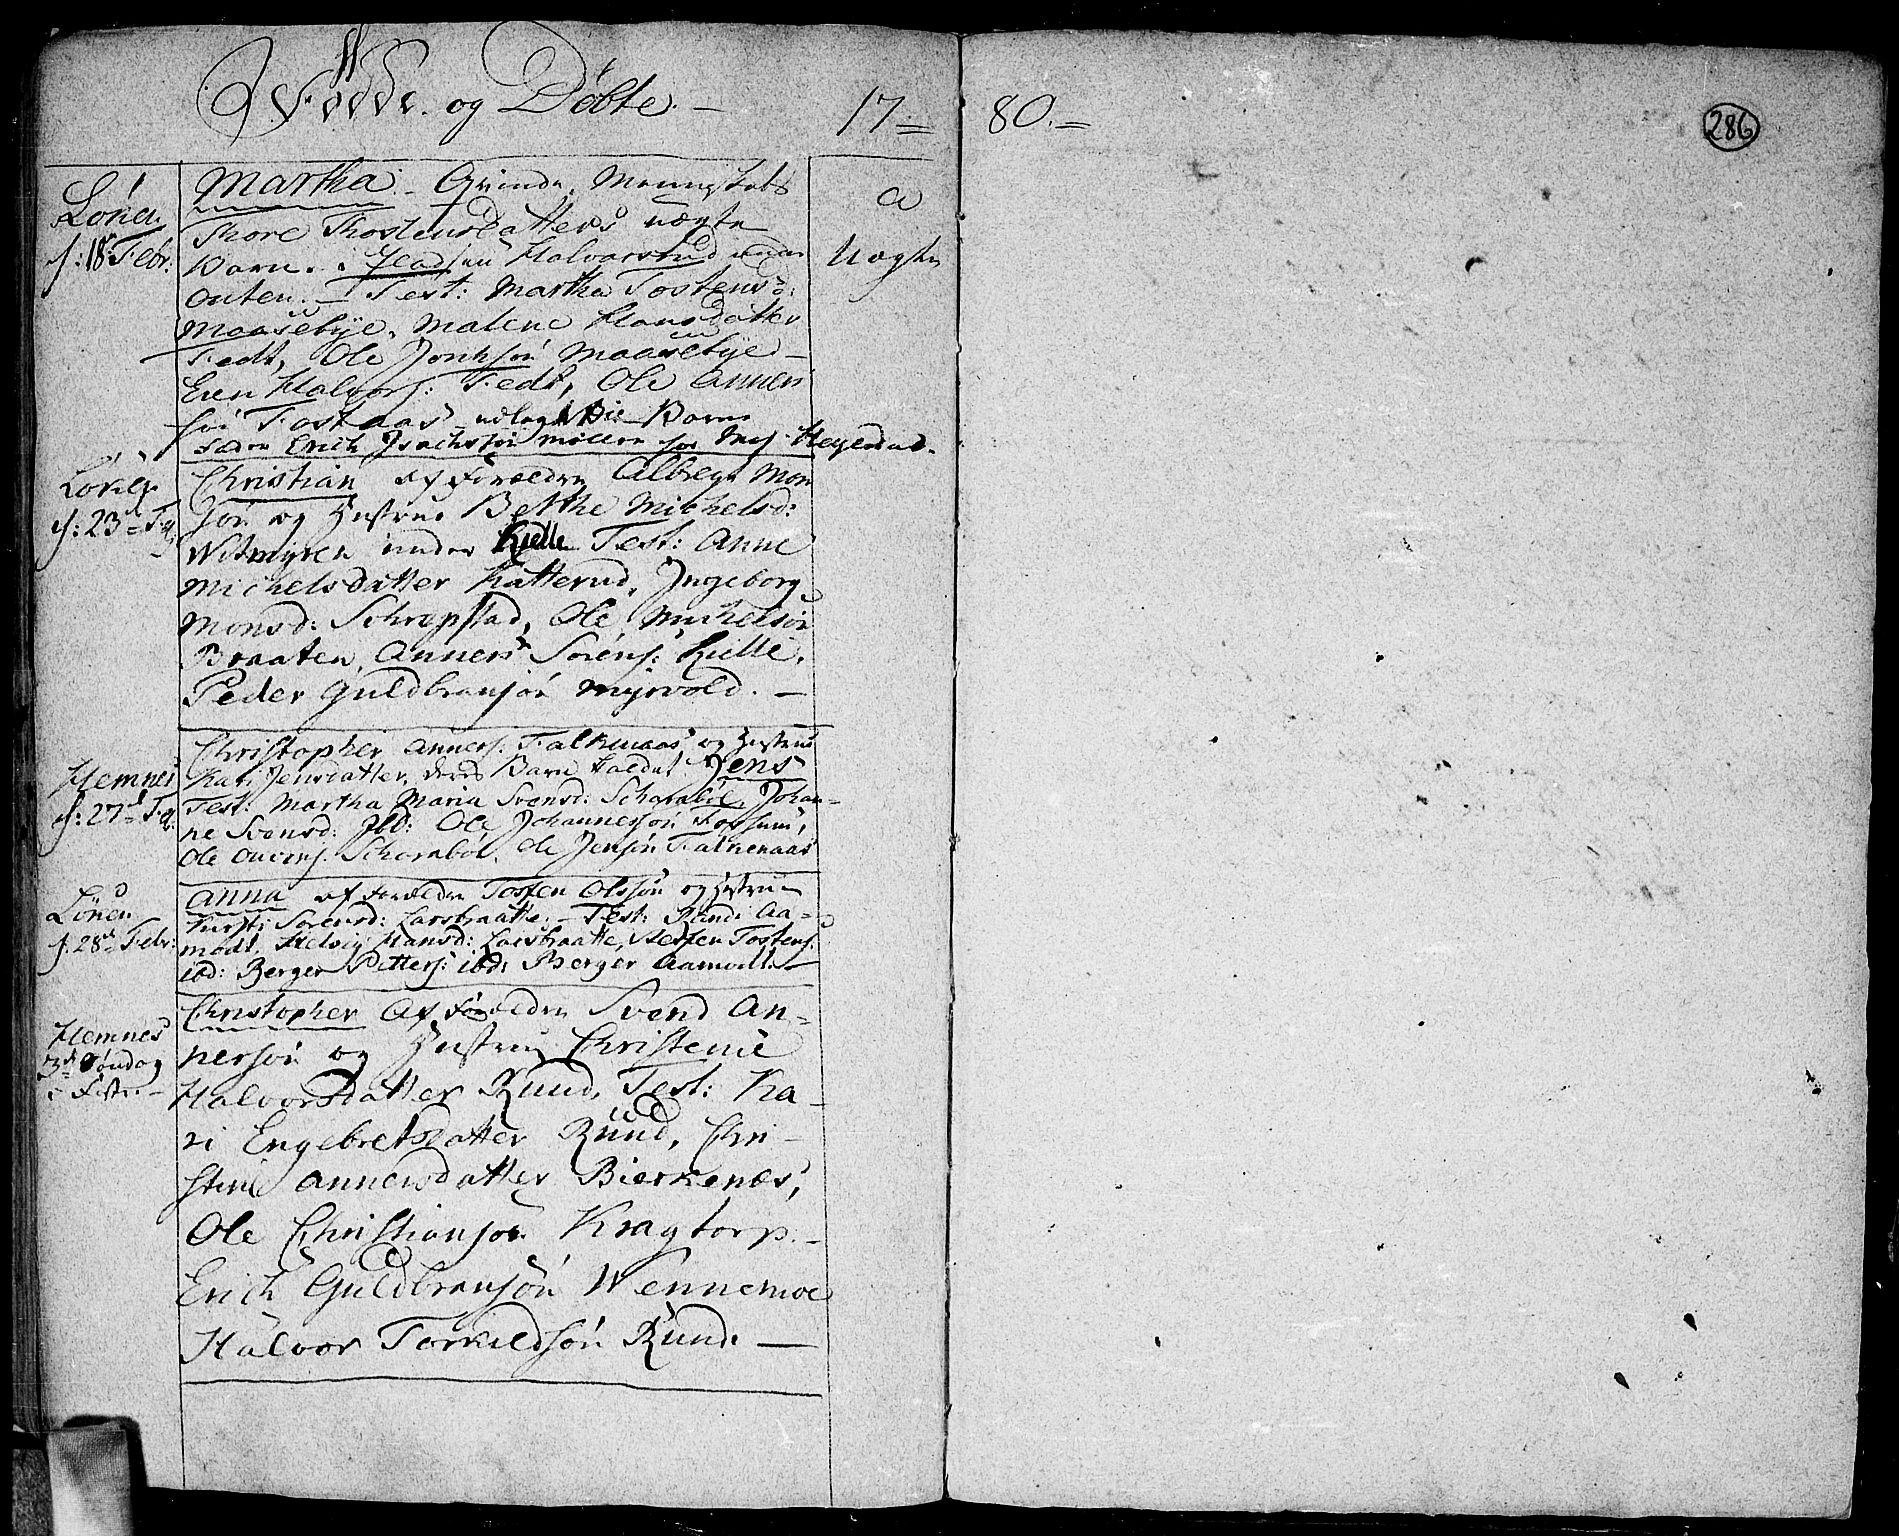 Fødde og Døbte. — 17 80. —
286
Løken
f: 18 Febr:
Martha. Qvinde Mennskets
Thore Thostensdatters uægte
Barn.
Halvorsrud
a
Uægte
Outen. — Test: Martha Tostensd:
Maasebye, Malene Hansdatter
Fedt, Ole Maasebye —
Even Halvors: Fedt, Ole Anners
søn Fostaas udlagt Barne
Erich Isachsøn
Løken
f: 23d
Christian af Forældre Mon
søn og Hustrue Bethe Michelsd:
Witmyren under Kielle Test: Anne
Michelsdatter Katterud, Ingeborg
Monsd: Schrepstad, Ole Michelsøn
Braaten, Anners Sørens: Kielle,
Peder Guldbransøn Myrvold. —
Hemnes
f: 27d
Christopher Anners: Falkenaas og Hustrue
Kari Jensdatter, deres Barn kaldet Jens
Test: Martha Maria Svensd: Schorabøl, Johan-
ne Svensd: Ibd: Ole Johannessøn Fossum,
Ole Schorabøl, Ole Jensøn Falkenaas
Løken
f: 28d Febr:
Anna af Forældre Tosten Olssøn og Hustrue
Kirsti Sørensd: Larsbraatte. — Test: Aa-
modt, Helvig Hansd: Larsbraatte, Tostens:
ibd: Berger Petters: ibd: Berger Aamodt —
Hemnes
3d Søndag
i Faste —
Christopher af Forældre Svend An-
nersøn og Hustrue Christene
Halvorsdatter Ruud, Test: Ka-
ri Engebretsdatter Ruud, Chri-
stine Annersdatter Bierkenæs,
Ole Christiansøn Kragtorp. —
Erich Guldbransøn Wennemoe
Halvor Torkildsøn Ruud. —